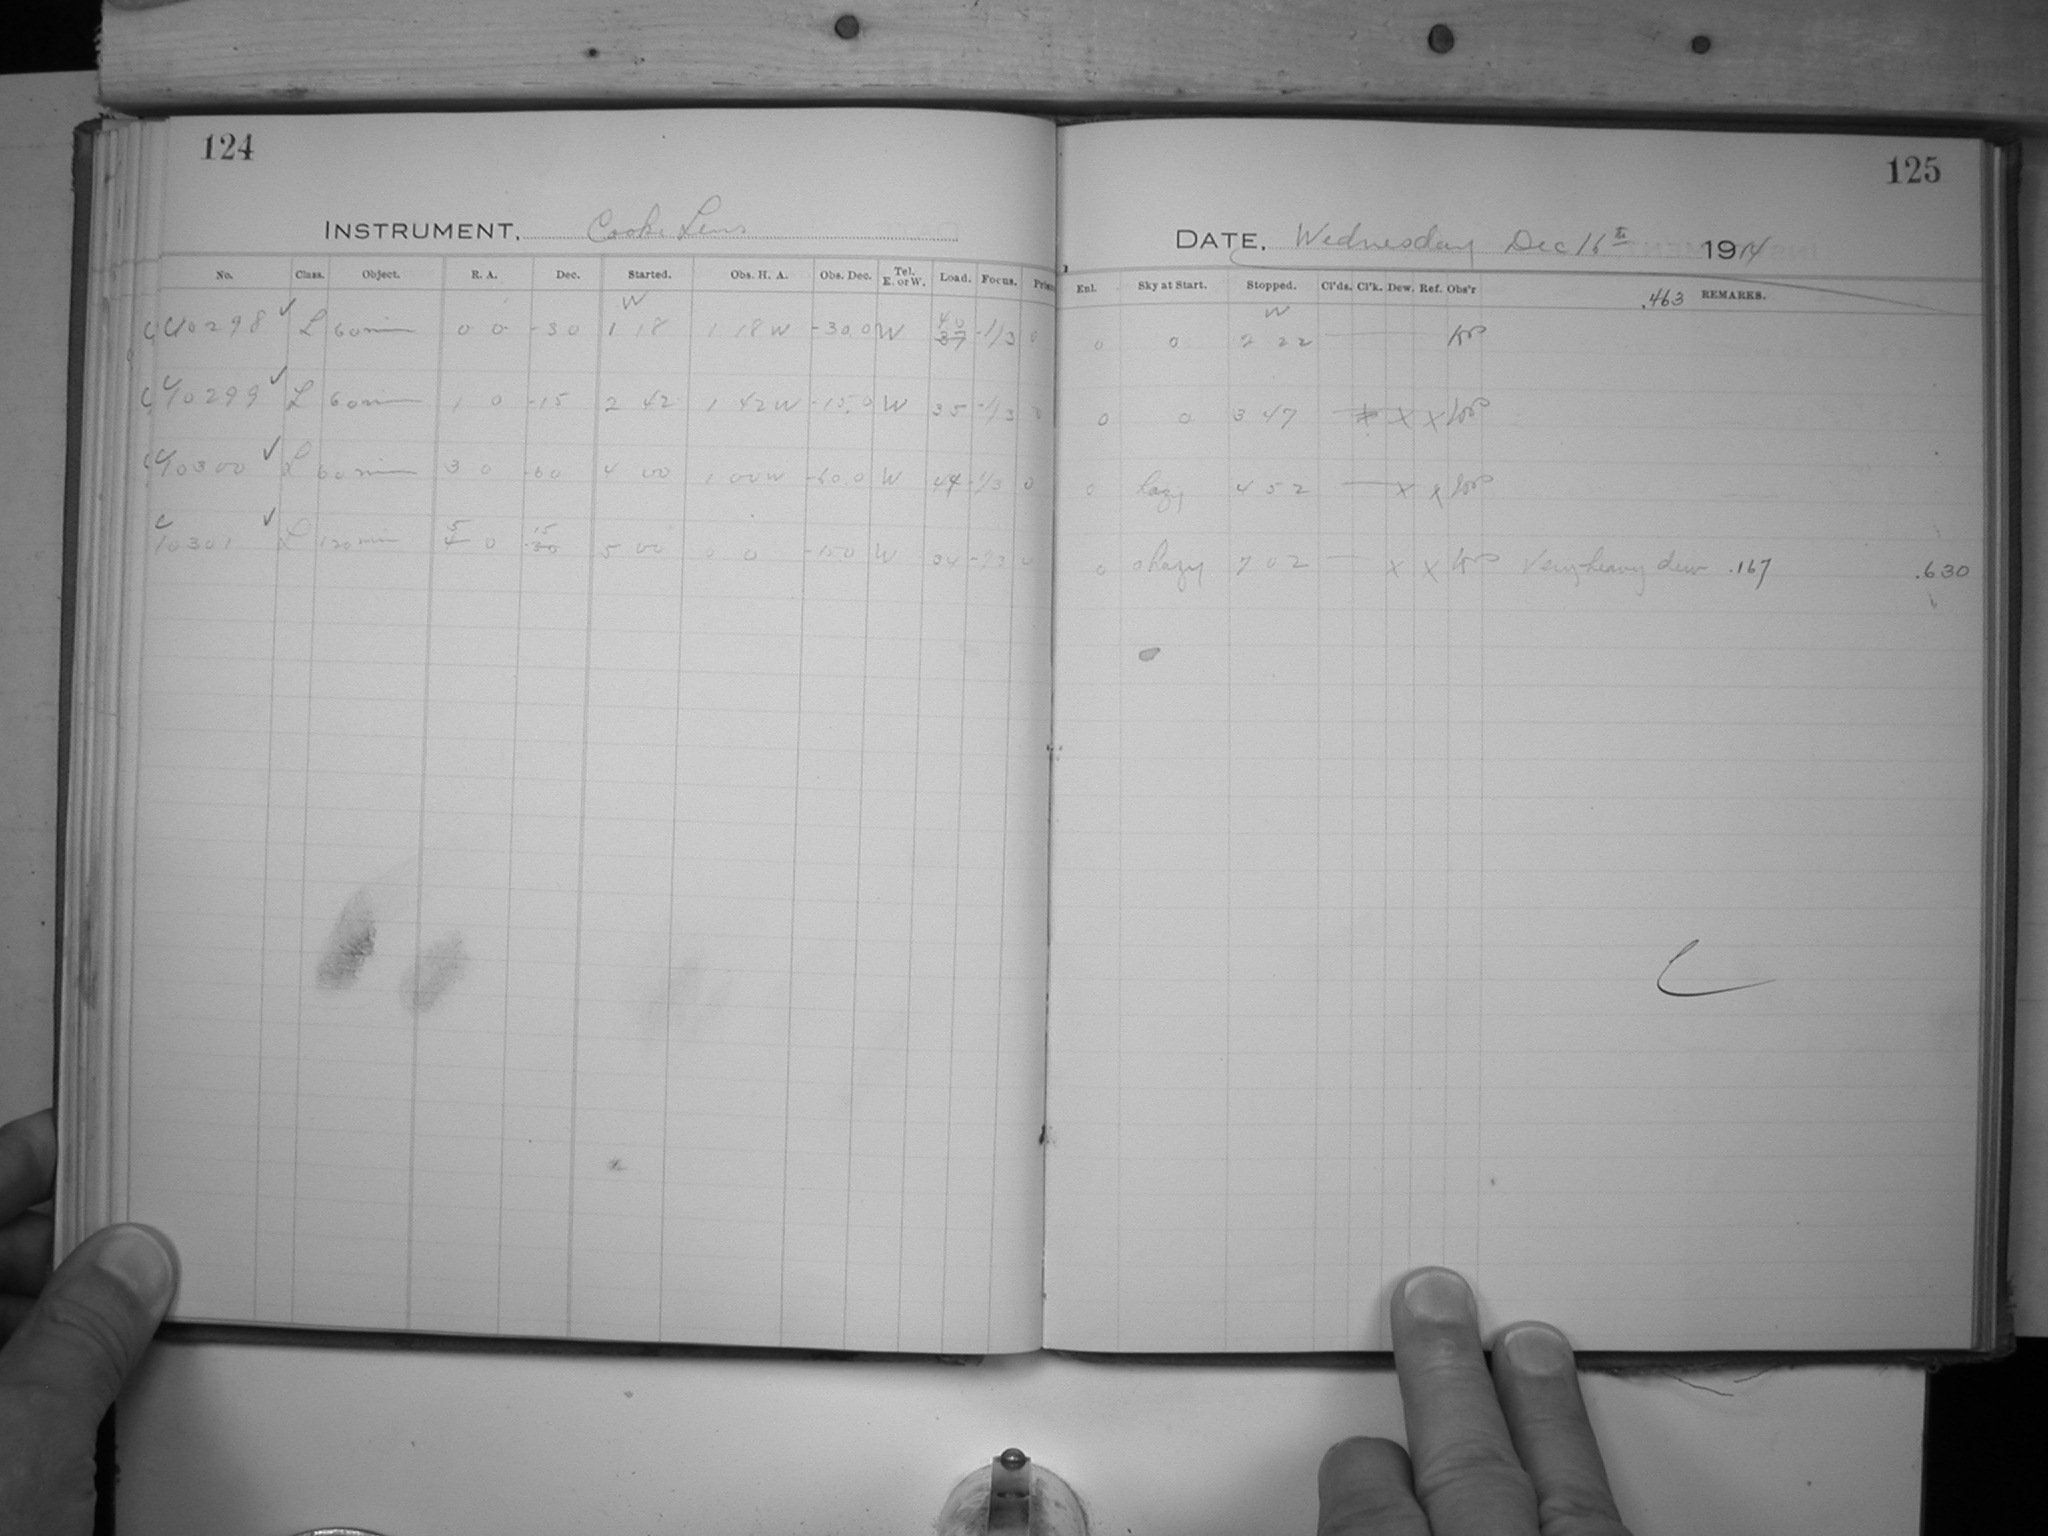 124
INSTRUMENT, Cooke Lens
No. Class. Object. R. A. Dec. Started. Obs. H. A. Obs. Dec. Tel. E. or W. Load. Focus.
W
10298 ✓ L 60 min 0 0 -30 1 18 1 18 W -30.0 W 40 37 -1/3 0
10299 ✓ L 60 min 1 0 -15 2 42 1 42 W -15.0 W 35 -1/3 0
10300 ✓ L 60 min 3 0 -60 4 00 1 00 W -60.0 W 44 -1/3 0
10301 ✓ L 120 min 5 4 0 15 -30 5 00 0 0 -15.0 W 34 -1/3 0
125
DATE, Wednesday Dec 16th 1914
Enl. Sky at Start. Stopped. Cl'ds. Cl'k. Dew. Ref. Obs'r .463 REMARKS.
W
0 0 2 22
0 0 3 47 x x
0 hazy 4 52 x x
0 0 hazy 7 02 x x Very heavy dew .167 .630